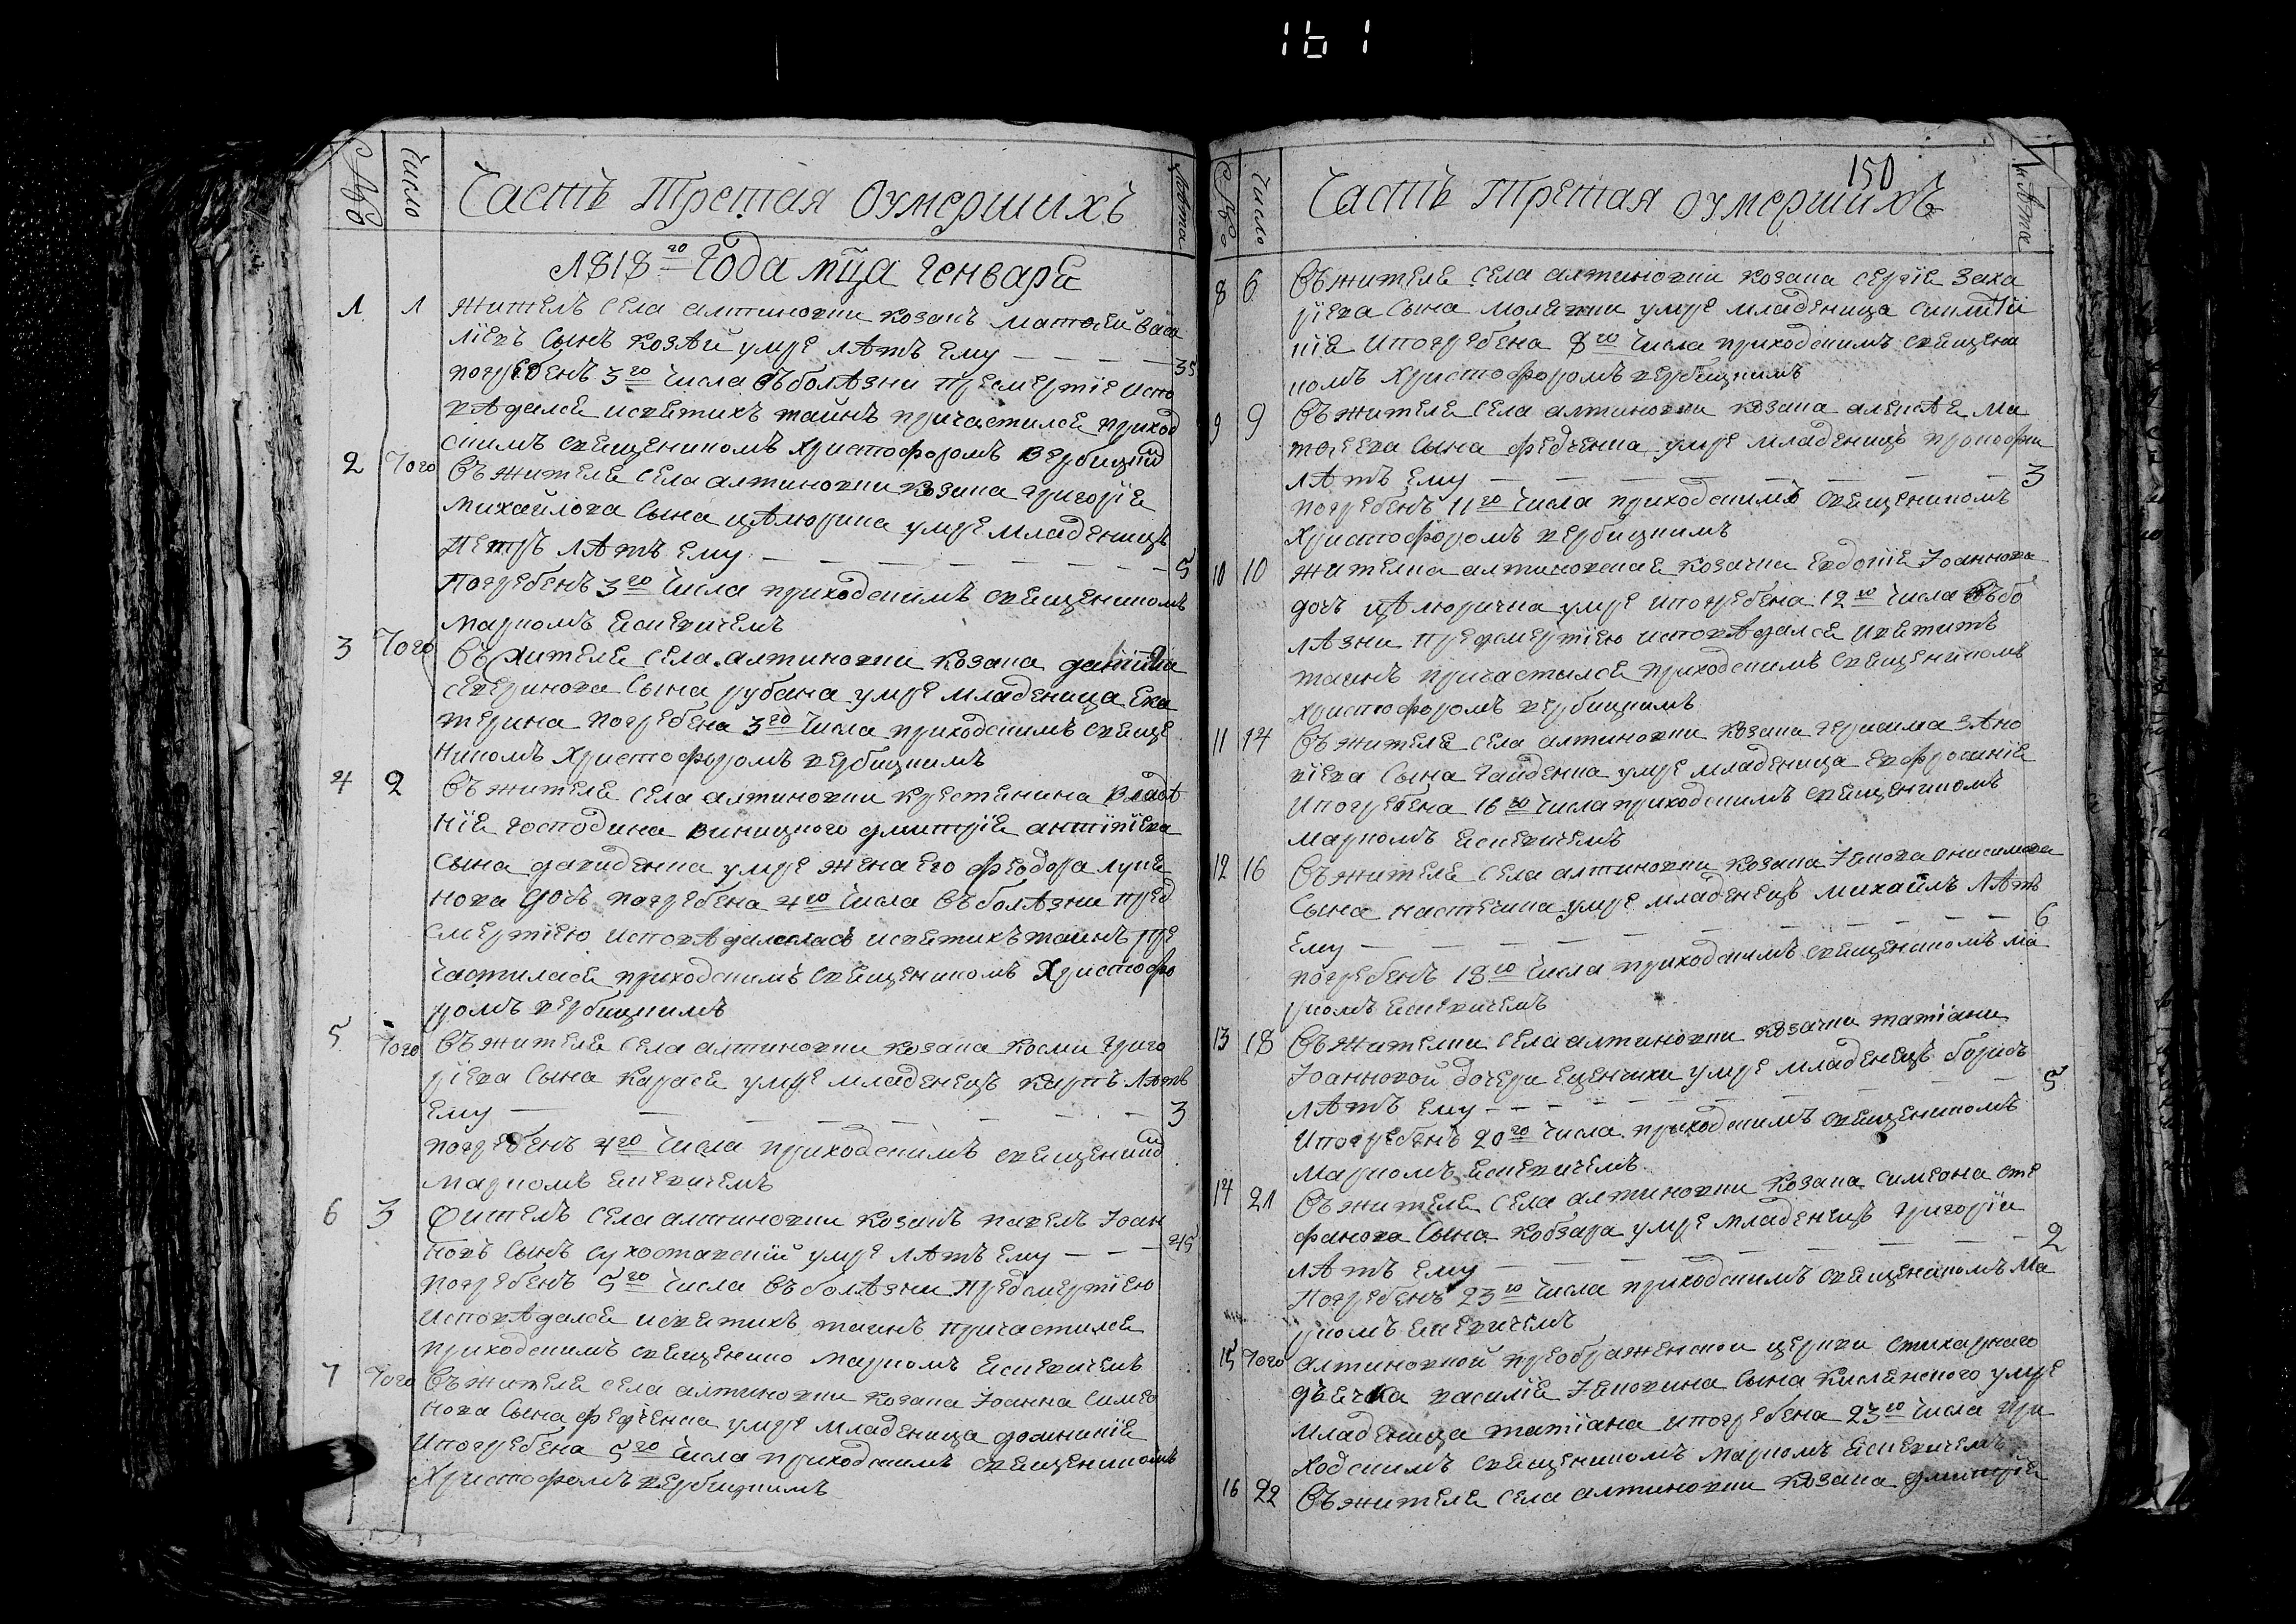 161
№ Число Часть Третая Оумершихъ Лѣта
1818го Года мца Генваря
1 1 Житель села алтиновки козакъ матѳей васи
лиевъ сынъ козѣй умре лѣтъ ему — — — — 35
погребенъ 3го числа въ болѣзни пресмертіе испо
вѣдался и святихъ тайнъ причастился приход
скимъ священикомъ Христофоромъ Вербицким
2 Того Въ жителя села алтиновки козака григорія
михайлова сына цѣлюрика умре младенецъ
Петръ лѣтъ ему — — — — — — — 5
Погребенъ 3го числа приходскимъ священикомъ
маркомъ Есиевичемъ
3 Того Въ жителя села алтиновки козака
северинова сына рубана умре младеница Ека
терина погребена 3го числа приходскимъ свяще
никомъ Христофоромъ вербицкимъ
4 2 Въ жителя села алтиновки крестянина владѣ
нія господина виницкого дмитрія антіпіева
сына давиденка умре жена его феодора лукя
нова дочь погребена 4го числа въ болѣзни пред
смертію исповѣдалася и святихъ таинъ пре
частилася приходскимъ священикомъ Христофо
ромъ вербицкимъ
5 Того Въ жителя села алтиновки козака косми григо
ріева сына карася умре младенецъ карпъ лѣтъ
ему — — — — — — — 3
погребенъ 4го числа приходскимъ священик
маркомъ Есиевичемъ
6 3 Житель села алтиновки козакъ павелъ Іоан
новъ сынъ сухоставскій умре лѣтъ ему — — — 45
погребенъ 5го числа въ болѣзни предсмертію
исповѣдался и святихъ таинъ причастился
приходскимъ священико маркомъ Есиевичемъ
7 Того Въ жителя села алтиновки козака Іоанна симео
нова сына федченка умре младеница домникія
и погребена 5го числа приходскимъ священикомъ
Христофромъ вербицкимъ
150
№ Число Часть Третая оумершихъ Лѣта
8 6 Въ жителя села алтиновки козака сергія Заха
ріева сына молявки умре младеница
кія и погребена 8го числа приходскимъ священи
комъ Христофоромъ вербицкимъ
9 9 Въ жителя села алтиновки козака алексѣя ма
тѳеева сына федченка умре младенецъ прокофии
лѣтъ ему — — — — — — — 3
погребенъ 11го числа приходскимъ священикомъ
Христофоромъ вербицкимъ
10 10 жителка алтиновская козачка Евдокія Іоаннова
дочь цѣлюричка умре и погребена 12го числа въ бо
лѣзни предсмертію исповѣдался и святитъ
таинъ причастился приходскимъ священикомъ
Христофоромъ вербицкимъ
11 14 Въ жителя села алтиновки козака герасима зѣно
віева сына гайденка умре младеница Евфросинія
и погребена 16го числа приходскимъ священикомъ
маркомъ Есиевичемъ
12 16 Въ жителя села алтиновки козака Іякова онисимова
сына настечика умре младенецъ михаилъ лѣтъ
ему — — — — — — — 6
погребенъ 18го числа приходскимъ священикомъ ма
ркомъ Есиевичемъ
13 18 Въ жителки села алтиновки козачки татіани
Іоанновой дочери Еценчихи умре младенецъ борисъ
лѣтъ ему — — — — — — — 5
и погребенъ 20го числа приходскимъ священикомъ
Маркомъ Есиевичемъ
14 21 Въ жителя села алтиновки козака симеона сте
фанова сына кобзара умре младенецъ григорій
лѣтъ ему — — — — — — — 2
Погребенъ 23го числа приходскимъ священикомъ Ма
ркомъ Есиевичемъ
15 Того алтиновкой преображенской церкви стихарнаго
дьячка василія Іяковина сына кислянского умре
младеница татіана и погребена 23го числа при
ходскимъ священикомъ маркомъ Есиевичемъ
16 22 Въ жителя села алтиновки козака дмитрія